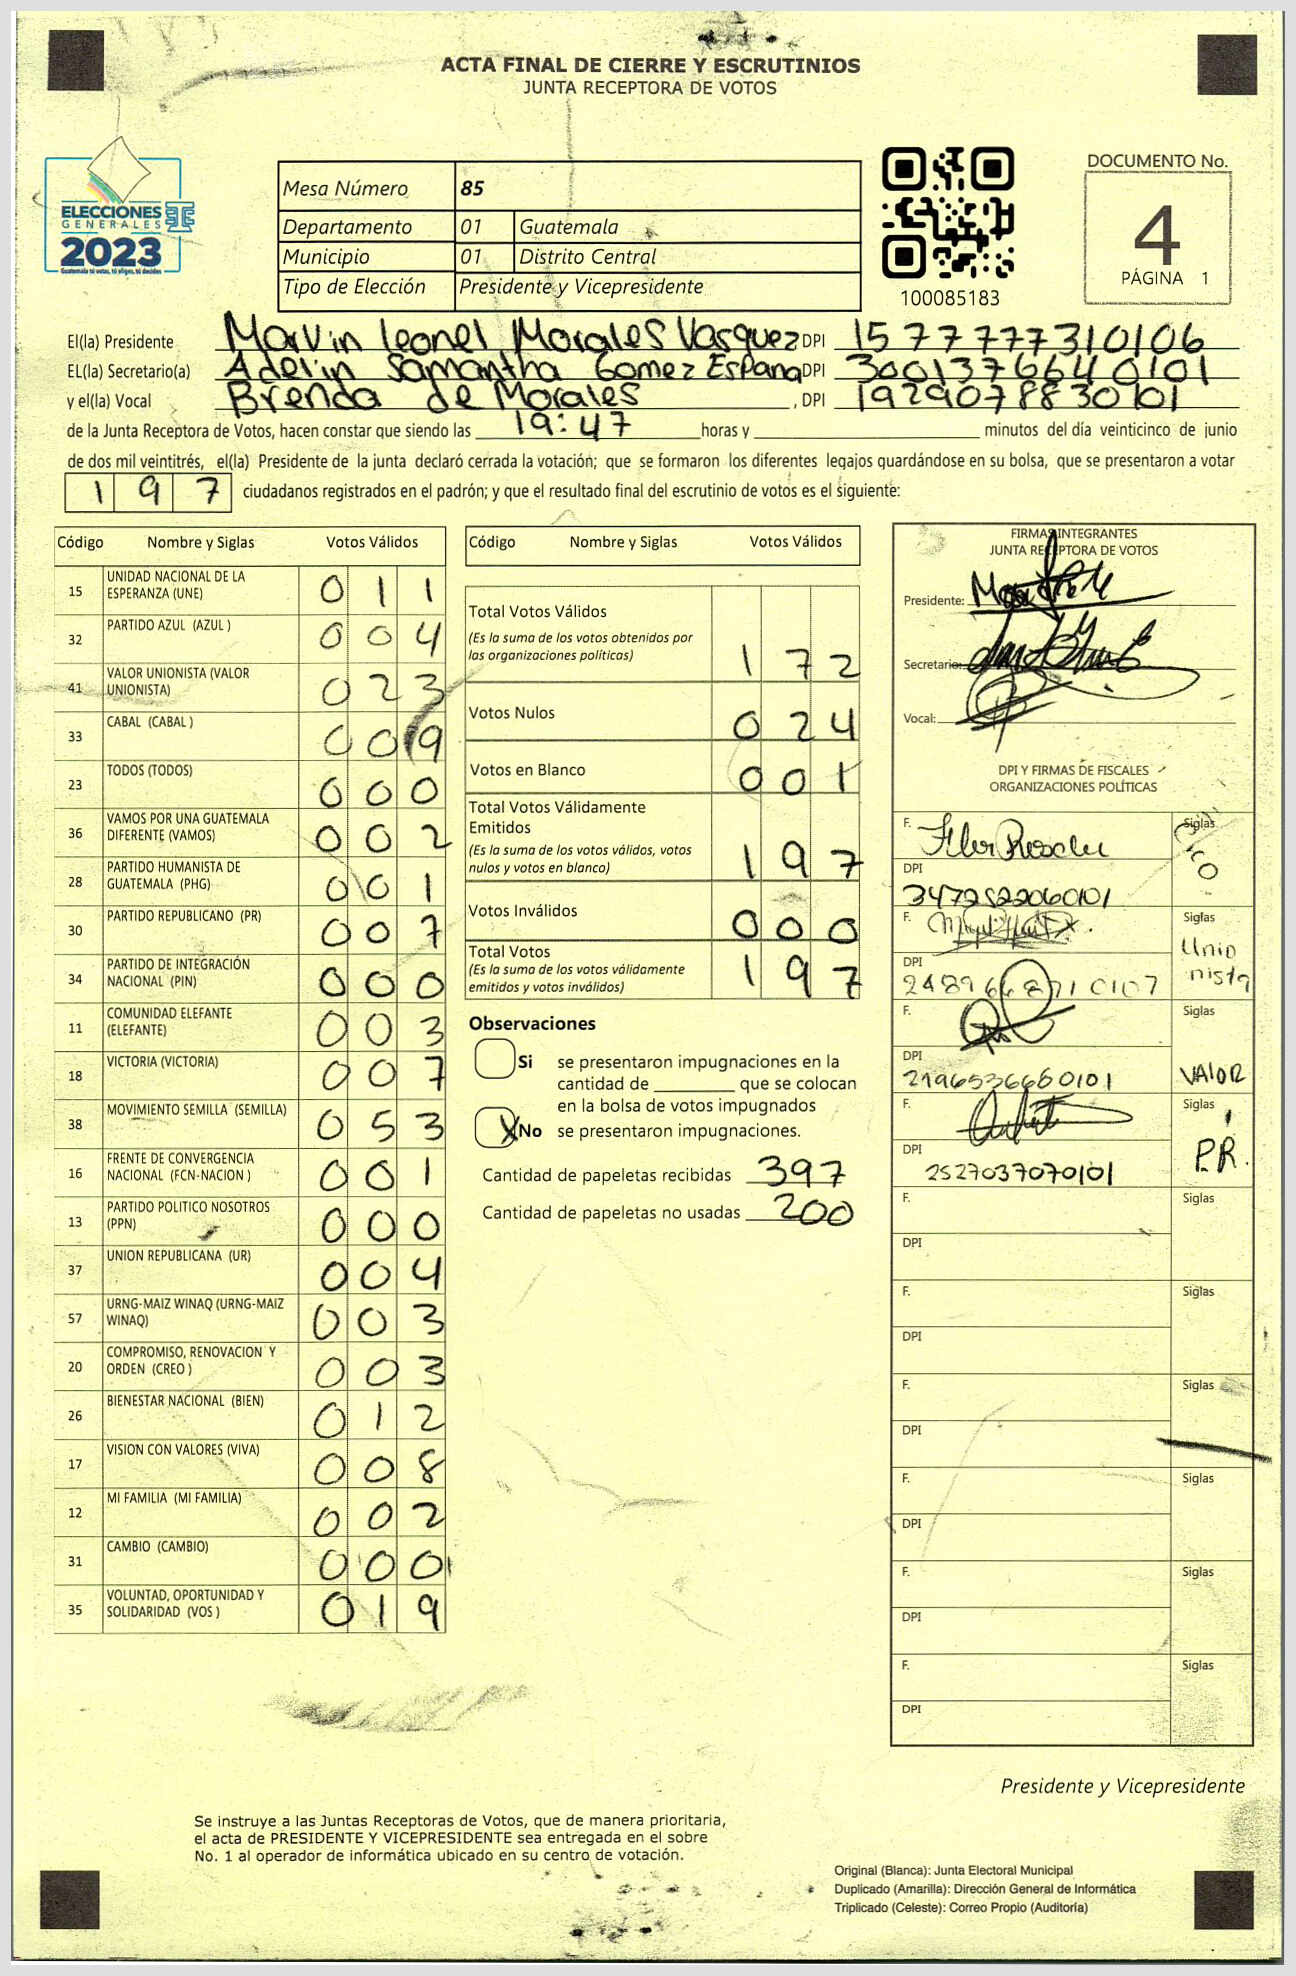 ACTA FINAL DE CIERRE Y ESCRUTINIOS
JUNTA RECEPTORA DE VOTOS
ELECCIONES
GENERALES
2023
Guatemala tú votas, tú eliges, tú decides
Mesa Número 85
Departamento 01 Guatemala
Municipio 01 Distrito Central
Tipo de Elección Presidente y Vicepresidente
100085183
DOCUMENTO No.
4
PÁGINA 1
El(la) Presidente Marvin Leonel Morales Vasquez DPI 1577777310106
EL(la) Secretario(a) Adelin Samantha Gomez España DPI 3001376640101
y el(la) Vocal Brenda de Morales , DPI 1929078830101
de la Junta Receptora de Votos, hacen constar que siendo las 19:47 horas y minutos del día veinticinco de junio
de dos mil veintitrés, el(la) Presidente de la junta declaró cerrada la votación; que se formaron los diferentes legajos quardándose en su bolsa, que se presentaron a votar
197 ciudadanos registrados en el padrón; y que el resultado final del escrutinio de votos es el siguiente:
Código Nombre y Siglas Votos Válidos
15 UNIDAD NACIONAL DE LA ESPERANZA (UNE) 011
32 PARTIDO AZUL (AZUL ) 004
41 VALOR UNIONISTA (VALOR UNIONISTA) 023
33 CABAL (CABAL ) 009
23 TODOS (TODOS) 000
36 VAMOS POR UNA GUATEMALA DIFERENTE (VAMOS) 002
28 PARTIDO HUMANISTA DE GUATEMALA (PHG) 001
30 PARTIDO REPUBLICANO (PR) 007
34 PARTIDO DE INTEGRACIÓN NACIONAL (PIN) 000
11 COMUNIDAD ELEFANTE (ELEFANTE) 003
18 VICTORIA (VICTORIA) 007
38 MOVIMIENTO SEMILLA (SEMILLA) 053
16 FRENTE DE CONVERGENCIA NACIONAL (FCN-NACION ) 001
13 PARTIDO POLITICO NOSOTROS (PPN) 000
37 UNION REPUBLICANA (UR) 004
57 URNG-MAIZ WINAQ (URNG-MAIZ WINAQ) 003
20 COMPROMISO, RENOVACION Y ORDEN (CREO ) 003
26 BIENESTAR NACIONAL (BIEN) 012
17 VISION CON VALORES (VIVA) 008
12 MI FAMILIA (MI FAMILIA) 002
31 CAMBIO (CAMBIO) 000
35 VOLUNTAD, OPORTUNIDAD Y SOLIDARIDAD (VOS ) 019
Código Nombre y Siglas Votos Válidos
Total Votos Válidos
(Es la suma de los votos obtenidos por
las organizaciones políticas) 172
Votos Nulos 024
Votos en Blanco 001
Total Votos Válidamente
Emitidos
(Es la suma de los votos válidos, votos
nulos y votos en blanco) 197
Votos Inválidos 000
Total Votos
(Es la suma de los votos válidamente
emitidos y votos inválidos) 197
Observaciones
Si se presentaron impugnaciones en la
cantidad de que se colocan
en la bolsa de votos impugnados
X No se presentaron impugnaciones.
Cantidad de papeletas recibidas 397
Cantidad de papeletas no usadas 200
FIRMAS INTEGRANTES
JUNTA RECEPTORA DE VOTOS
Presidente:
Secretario:
Vocal:
DPI Y FIRMAS DE FISCALES
ORGANIZACIONES POLÍTICAS
F. Siglas
DPI
3472522060101
F. Siglas Unio
nista
DPI
F. Siglas
DPI VALOR
2196536660101
F. Siglas
DPI P.R.
2527037070101
F. Siglas
DPI
F. Siglas
DPI
F. Siglas
DPI
F. Siglas
DPI
F. Siglas
DPI
F. Siglas
DPI
Presidente y Vicepresidente
Se instruye a las Juntas Receptoras de Votos, que de manera prioritaria,
el acta de PRESIDENTE Y VICEPRESIDENTE sea entregada en el sobre
No. 1 al operador de informática ubicado en su centro de votación.
Original (Blanca): Junta Electoral Municipal
Duplicado (Amarilla): Dirección General de Informática
Triplicado (Celeste): Correo Propio (Auditoría)